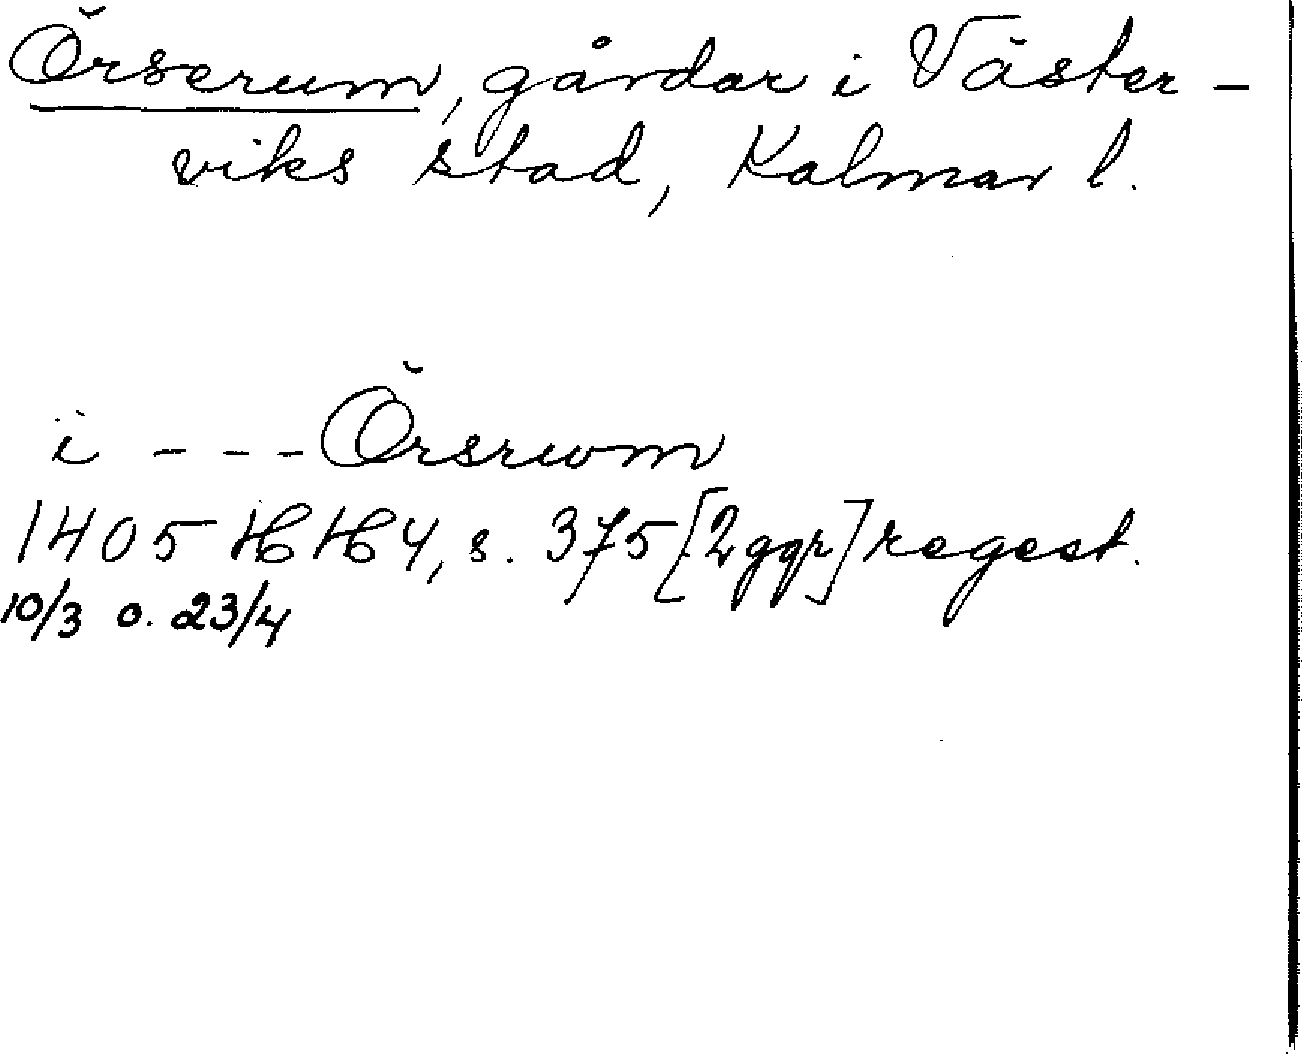 Örserum, gårdar i Väster-
viks stad, Kalmar l.
i --- Örsrwm
1405 HH 4, s. 375 [2 ggr] regest.
10/3 o. 23/4